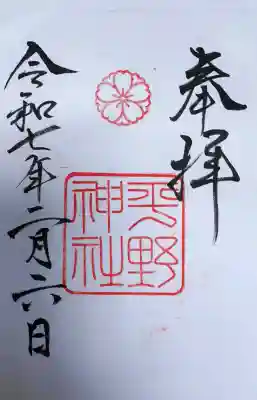 奉拝
平野
神社
令和七年二月六日